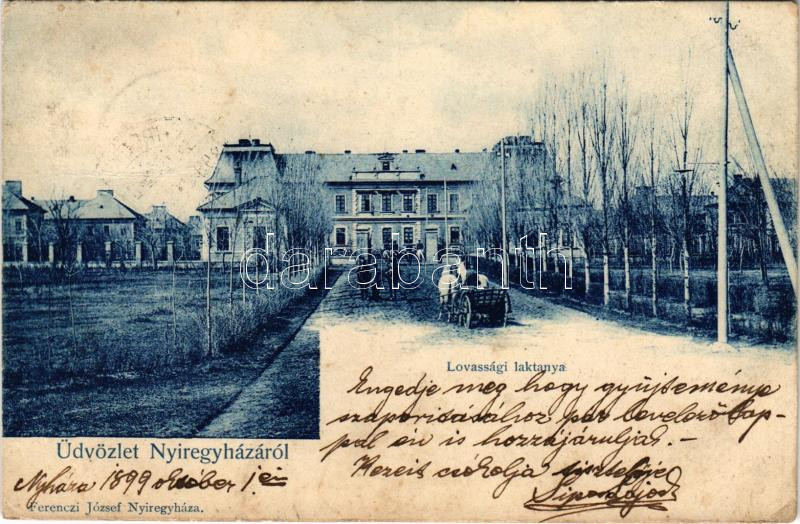 darabanth
Lovassági laktanya
Engedje meg hogy gyüjteménye
szaporitásához pár levelező lap-
pal én is hozzájáruljak. -
Kezeit csókolja tisztelője
Üdvözlet Nyiregyházáról
Nyháza 1899 október 1én
Ferenczi József Nyiregyháza.